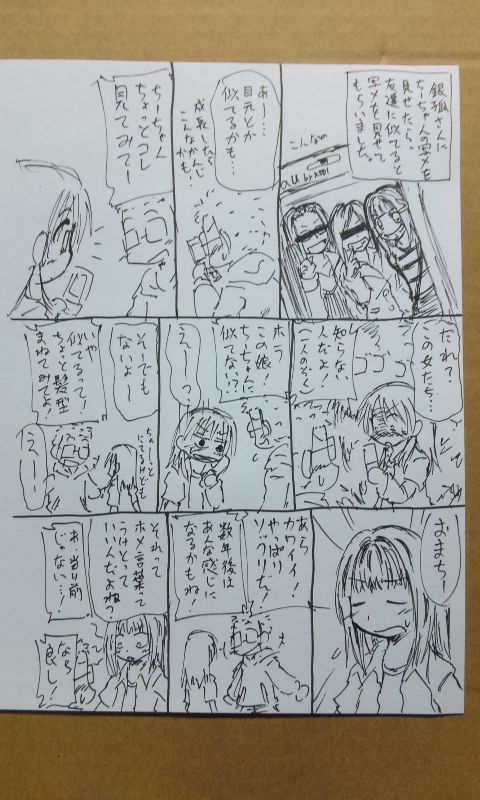 銀狐さんに
ちーちゃんの写メを
見せたら、
友達に似てると
写メを見せて
もらいました。
こんなの
au by KDDI
あー…
目元とか
似てるかも…
成長したら
こんなかんじ
かも…
ちーちゃん
ちょっとコレ
見てみてー
だれ?
この女たち…
ゴゴゴ
知らない
人だよ!
ホラ
この娘!
ちーちゃんに
似てない!?
えーっ
そーでも
ないよー
ちょーっと
にてるけども
いや
似てるって!
ちょっと髪型
まねてみてよ!
えーっ
おまちー
あら
カワイイ!
やっぱり
ソックリだ!
数年後は
あんな感じに
なるかもね!
それって
ホメ言葉って
うけとって
いいんだよね?
あ、当り前
じゃない…!
なら
良し!